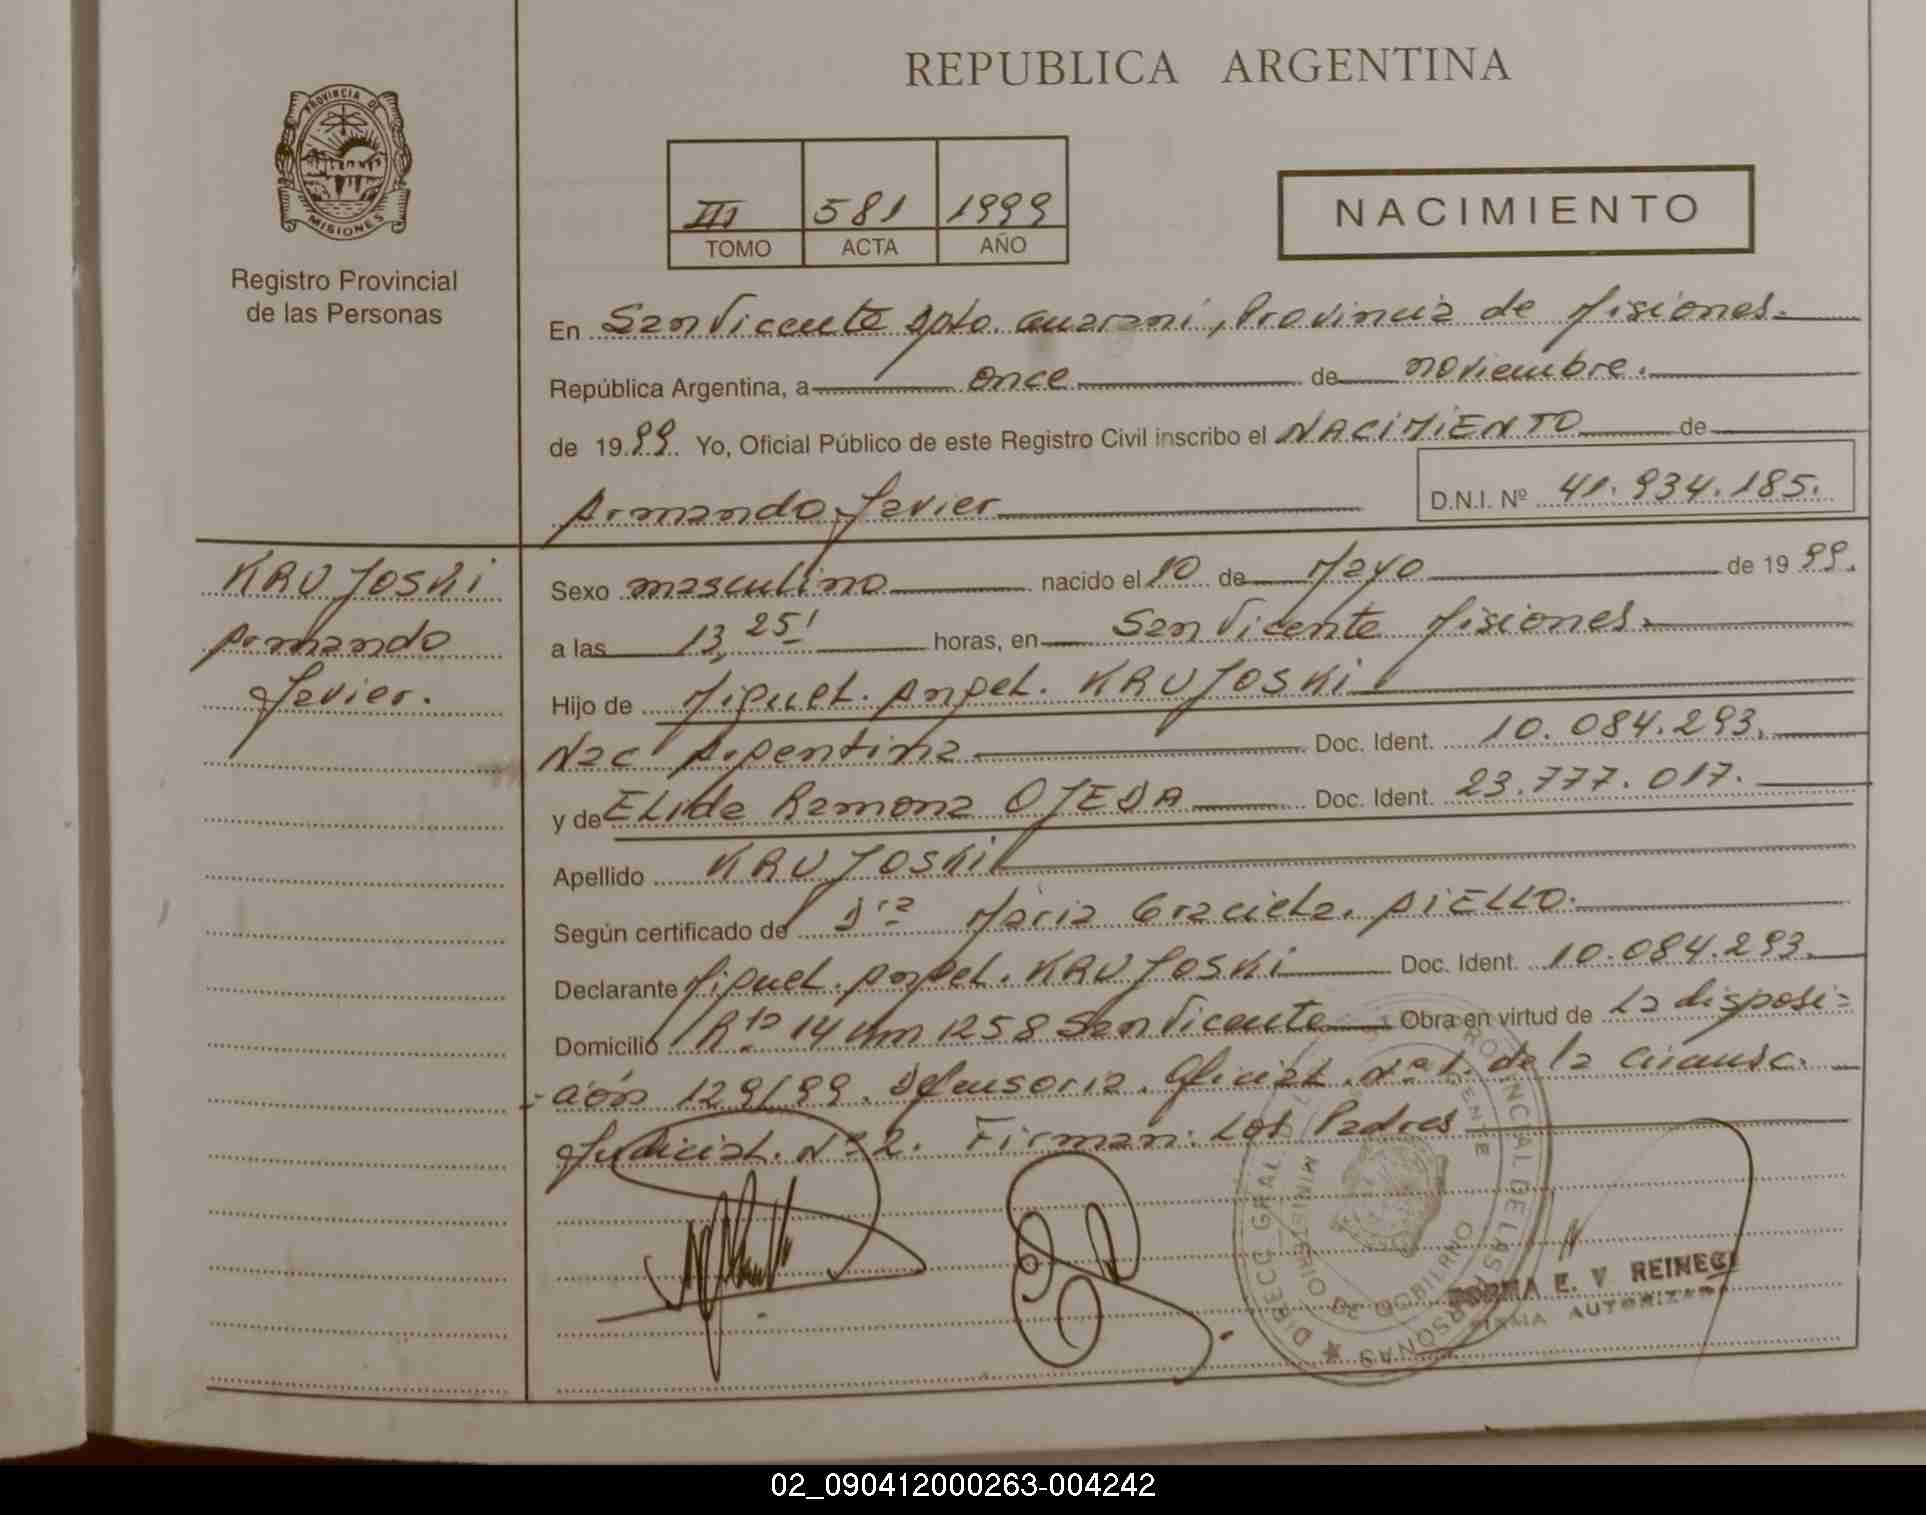 REPUBLICA ARGENTINA
PROVINCIA DE
MISIONES
Registro Provincial
de las Personas
III 581 1999
TOMO ACTA AÑO
NACIMIENTO
En San Vicente Dpto. Guaraní, Provincia de Misiones.
República Argentina, a once de noviembre.
de 1999. Yo, Oficial Público de este Registro Civil inscribo el NACIMIENTO de
Armando Javier D.N.I. Nº 41.934.185.
KRUJOSKI
Armando
Javier.
Sexo masculino nacido el 10 de Mayo de 1999.
a las 13,25' horas, en San Vicente Misiones.
Hijo de Miguel Angel KRUJOSKI
Nac Argentina Doc. Ident. 10.084.293.
y de ELida Ramona OJEDA Doc. Ident. 23.777.017.
Apellido KRUJOSKI
Según certificado de Dra María Graciela AIELLO.
Declarante Miguel Angel KRUJOSKI Doc. Ident. 10.084.293.
Domicilio Rta 14 km 1258 San Vicente Obra en virtud de La disposi=
=ción 129/99. Defensoria Oficial Nº 1. de la Circunsc.
Judicial Nº 2. Firman: Los Padres
DIRECC. GRAL. PROVINCIAL DE LAS PERSONAS
MINISTERIO DE GOBIERNO
NORMA E. V. REINECK
FIRMA AUTORIZADA
02_090412000263-004242